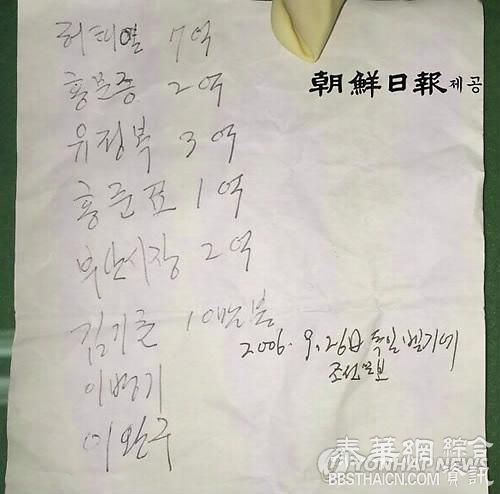 허태열 7억
朝鮮日報 제공
홍문종 2억
유정복 3억
홍준표 1억
부산시장 2억
김기춘 10만불
2006. 9. 26日 독일 벨기에
조선일보
이병기
이완구
YONHAP NEWS
泰華網 綜合
BBSTHAICN.COM 資訊